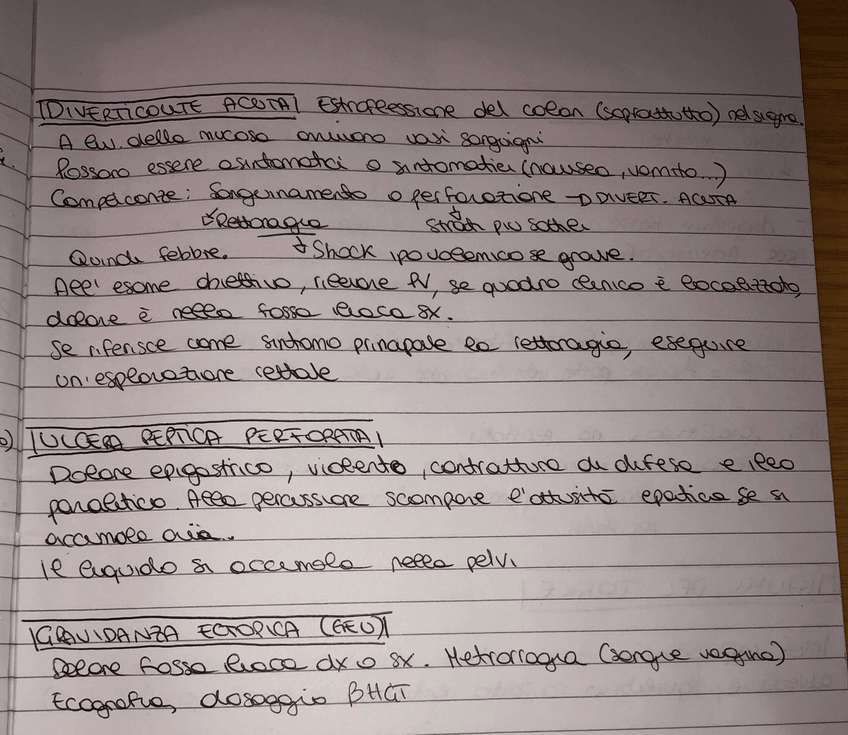 DIVERTICOLITE ACUTA Estroflessione del colon (soprattutto) nel sigma.
A liv. della mucosa arrivano vasi sanguigni
Possono essere asintomatici o sintomatici (nausea, vomito...)
Complicanze: Sanguinamento o perforazione → DIVERT. ACUTA
↓ Rettoragia ↓ strati più sottili
Quindi febbre. ↓ Shock ipovolemico se grave.
All' esame obiettivo, rilevare PV, se quadro clinico è localizzato,
dolore è nella fossa iliaca sx.
Se riferisce come sintomo principale la rettoragia, eseguire
un'esplorazione rettale
ULCERA PEPTICA PERFORATA
Dolore epigastrico, violento, contrattura di difesa e ileo
paralitico. Alla percussione scompare l'ottusità epatica se si
accumula aria.
Il liquido si accumula nella pelvi
GRAVIDANZA ECTOPICA (GEU)
Dolore fossa iliaca dx o sx. Metrorragia (sangue vagina)
Ecografia, dosaggio βHGT